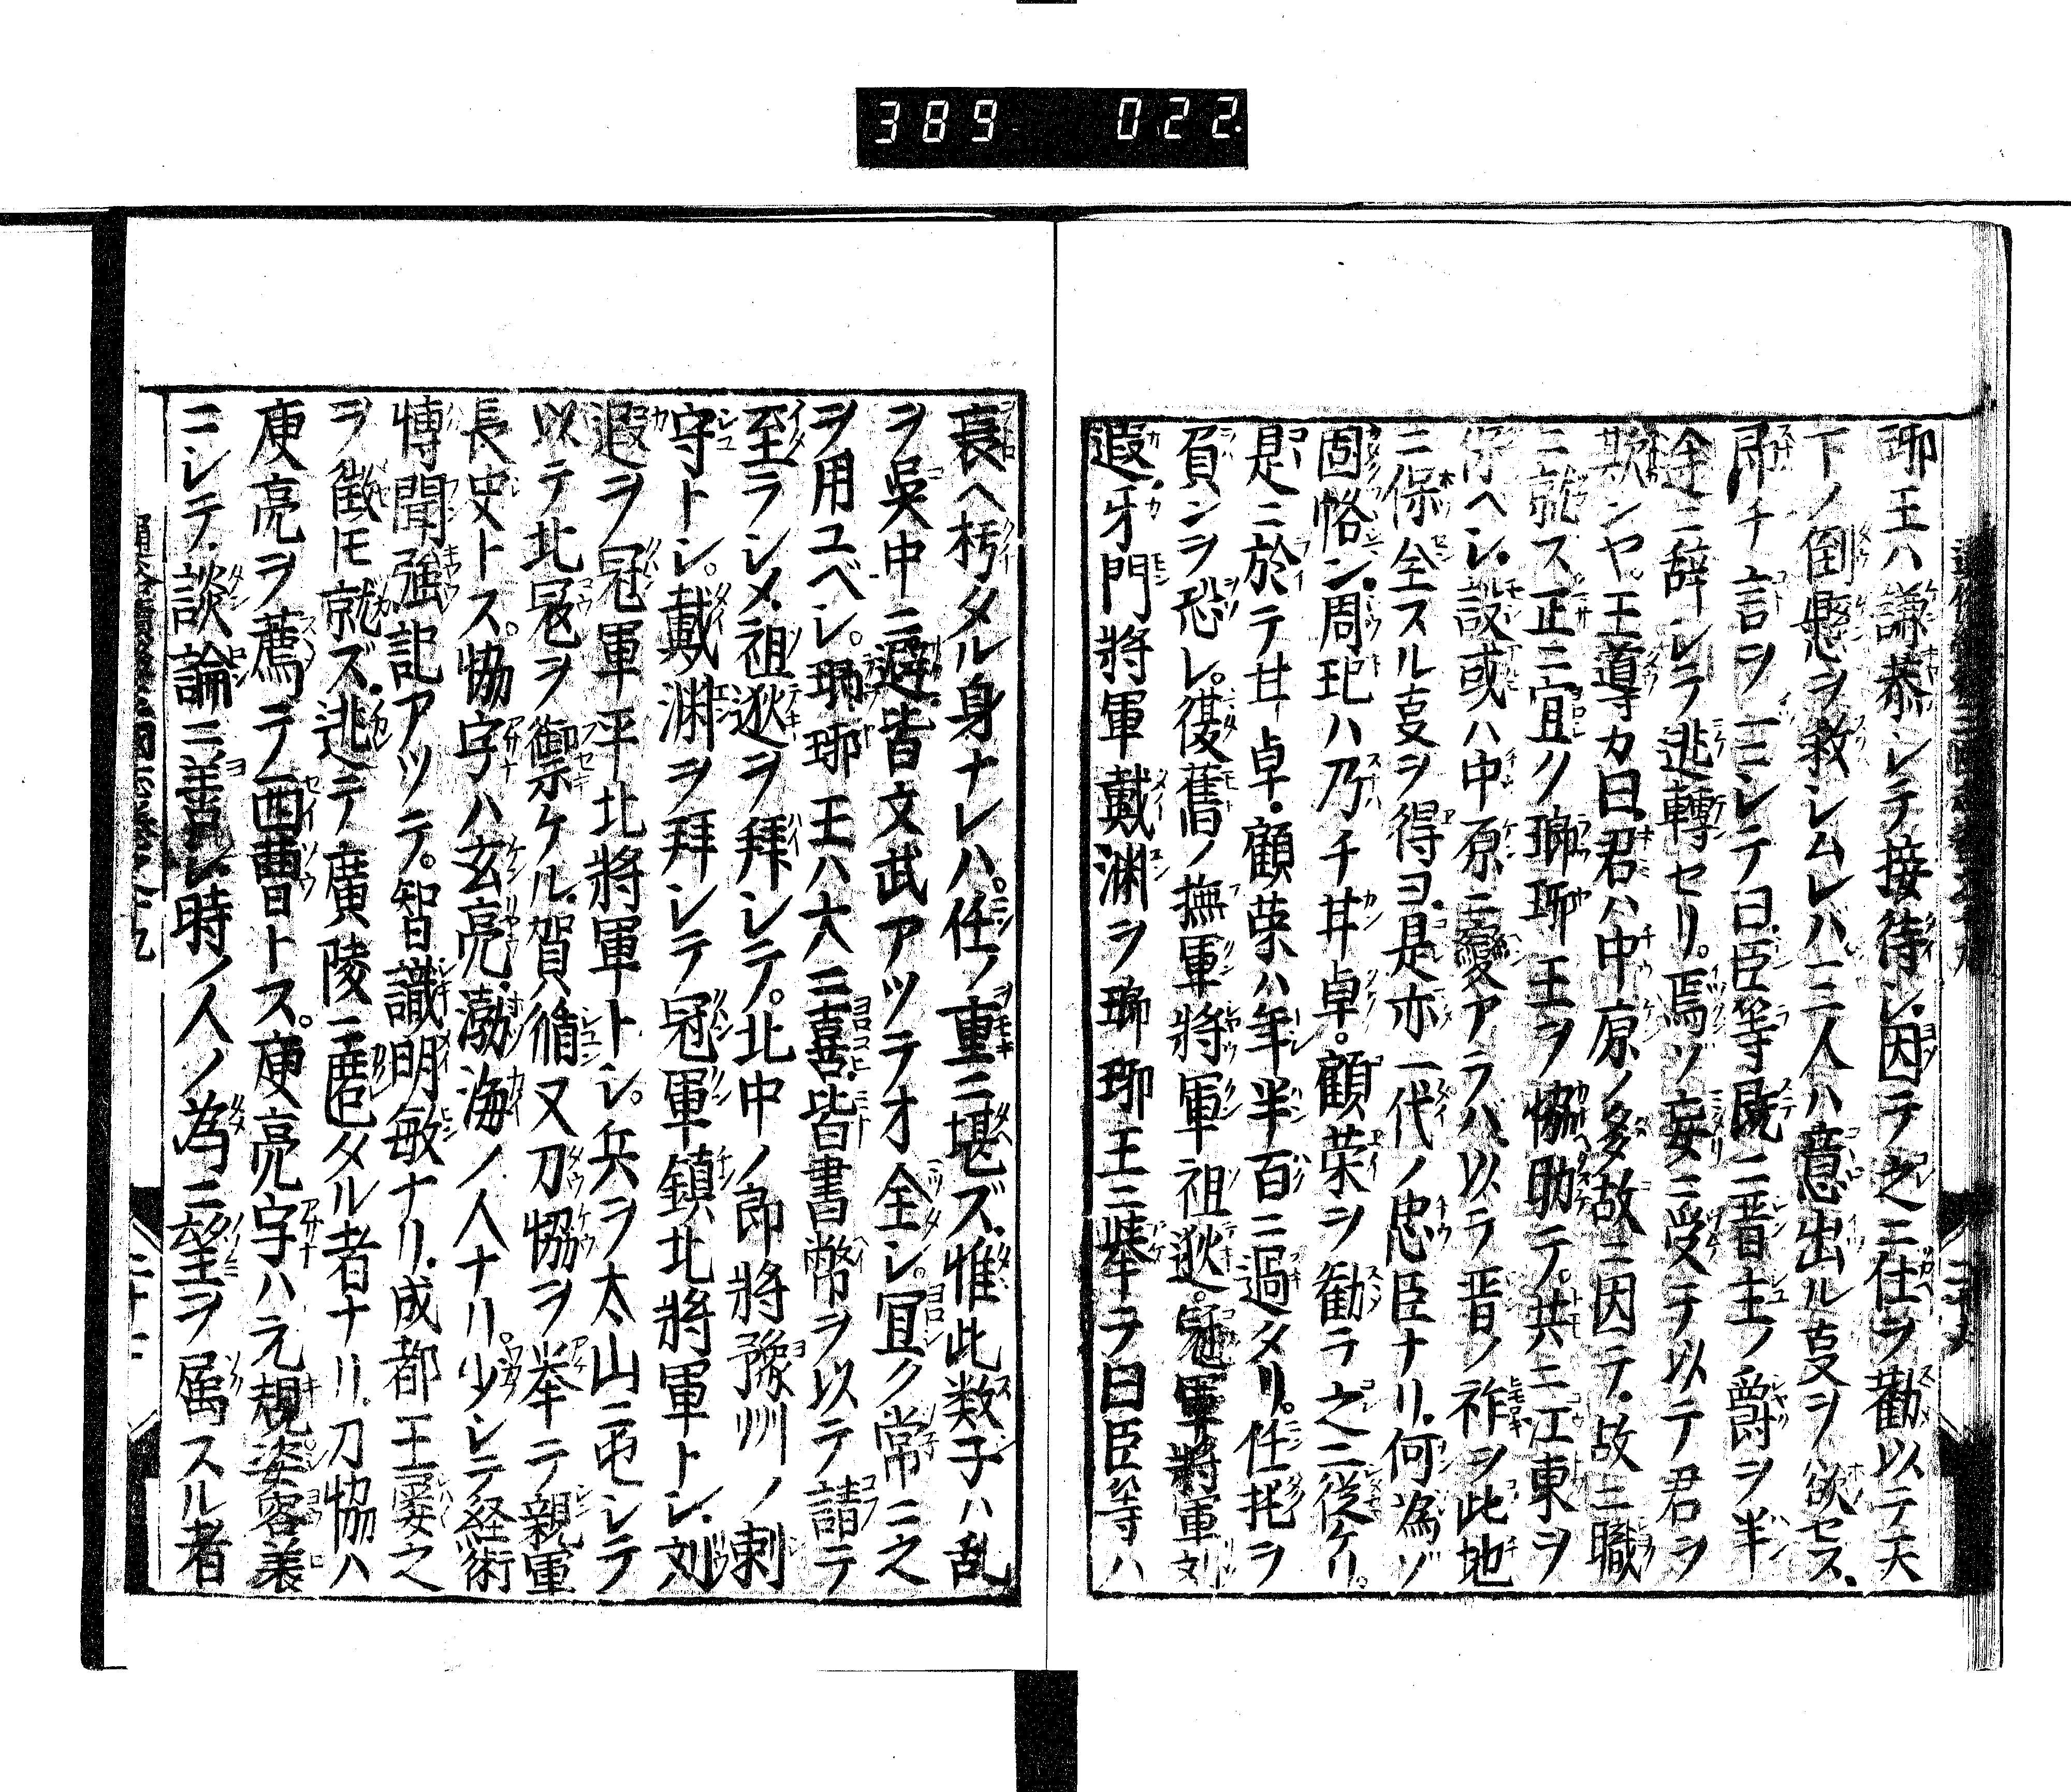 389 022
瑯王ハ謙恭シテ接待シ因テ之ニ仕ヲ勸以テ天
下ノ倒懸ヲ救シムレバ一三人ハ意出ル叓ヲ欲セス
即チ言ヲ一ニシテ曰臣等既ニ晋主ノ爵ヲ半
途ニ辞シテ逃轉セリ焉ソ妄ニ受テ以テ君ヲ
欺ンヤ王導カ曰君ハ中原ノ多故ニ因テ故ニ職
ニ就ス正ニ宜ク瑯琊王ヲ恊助テ共ニ江東ヲ
保ヘシ設或ハ中原ニ變アラバ以テ晋ノ祚ヲ此地
ニ保全スル叓ヲ得ヨ是亦一代ノ忠臣ナリ何為ゾ
固恪ン周玘ハ乃チ甘卓顧荣ヲ勧テ之ニ從ケリ
是ニ於テ甘卓顧荣ハ年半百ニ過タリ任托ヲ
負ンヲ恐レ復舊ノ撫軍將軍祖逖冠軍將軍刘
遐牙門將軍戴渊ヲ瑯琊王ニ挙テ曰臣等ハ
衰ヘ朽タル身ナレハ任ノ重ニ堪ズ惟此数子ハ乱
ヲ吳中ニ避皆文武アツテオ全シ冝ク常ニ之
ヲ用ユベシ瑯琊王ハ大ニ喜皆書幣ヲ以テ請テ
至ラシメ祖逖ヲ拜シテ北中ノ郎將豫州ノ刺
守トシ戴渊ヲ拜シテ冠軍鎮北將軍トシ刘
遐ヲ冠軍平北將軍トシ兵ヲ太山ニ屯シテ
以テ北冦ヲ禦ケル賀循又刀恊ヲ举テ親軍
長史トス恊字ハ玄亮渤海ノ人ナリ少シテ経術
博聞強記アツテ智識明敏ナリ成都王屡之
ヲ徴トモ就ズ逃テ廣陵ニ居タル者ナリ刀恊ハ
庾亮ヲ薦テ西曹トス庾亮字ハ元規姿容美
ニシテ談論ニ善シ時ノ人ノ為ニ望ヲ属スル者
二十一